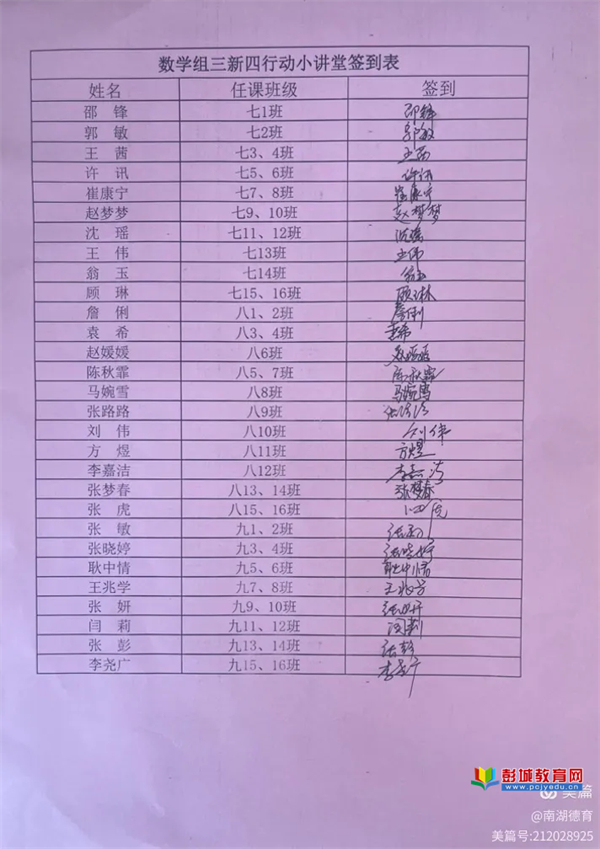 数学组三新四行动小讲堂签到表
姓名 任课班级 签到
邵 锋 七1班 邵锋
郭 敏 七2班 郭敏
王 茜 七3、4班 王茜
许 讯 七5、6班 许讯
崔康宁 七7、8班 崔康宁
赵梦梦 七9、10班 赵梦梦
沈 瑶 七11、12班 沈瑶
王 伟 七13班 王伟
翁 玉 七14班 翁玉
顾 琳 七15、16班 顾琳
詹 俐 八1、2班 詹俐
袁 希 八3、4班 袁希
赵媛媛 八6班 赵媛媛
陈秋霏 八5、7班 陈秋霏
马婉雪 八8班 马婉雪
张路路 八9班 张路路
刘 伟 八10班 刘伟
方 煜 八11班 方煜
李嘉洁 八12班 李嘉洁
张梦春 八13、14班 张梦春
张 虎 八15、16班
张 敏 九1、2班 张敏
张晓婷 九3、4班 张晓婷
耿中情 九5、6班 耿中情
王兆学 九7、8班 王兆学
张 妍 九9、10班 张妍
闫 莉 九11、12班 闫莉
张 彭 九13、14班 张彭
李尧广 九15、16班 李尧广
彭城教育网
www.pcjyedu.cn
美篇
@南湖德育
美篇号:212028925